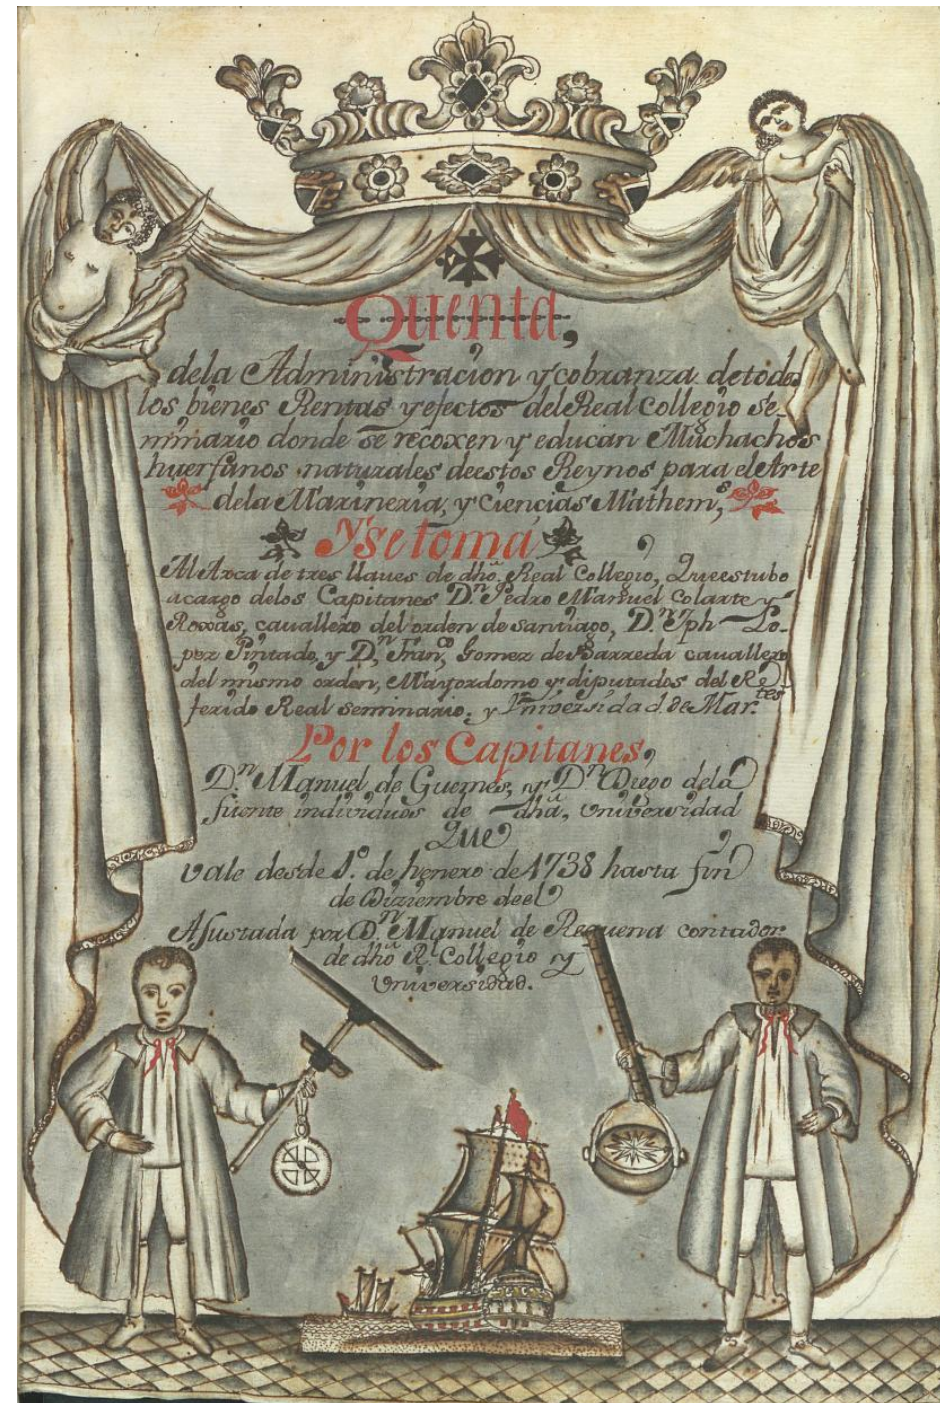 Quenta,
dela Administracion y cobranza de todos
los bienes Rentas y efectos del Real Collegio Se-
minario donde se recoxen y educan Muchachos
huerfanos naturales deestos Reynos para el Arte
dela Marineria, y Ciencias Mathem,s
Y se toma,
Al Arca de tres llaves de dhô. Real Collegio, Que estubo
acargo delos Capitanes Dn. Pedro Manuel Colarte y
Roxas, cauallero del orden de santiago, Dn. Jph Lo-
pez Pintado, y Dn, Franco, Gomez de Barreda cauallero
del mismo orden, Mayordomo y diputados del Re-
ferido Real seminario, y Vniversidad. de Martes.
Por los Capitanes,
Dn. Manuel de Guemes, y Dn Diego dela
fuente individuos de dha, Universidad
Que
vale desde 1º. de henero de 1738 hasta fin
de Diziembre deel
Ajustada por Dn. Manuel de Requena contador
de dhô R. Collegio y
Universidad.